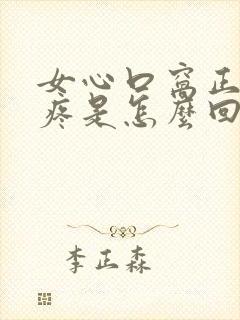 女心口窩正
疼是怎麼回
李正森